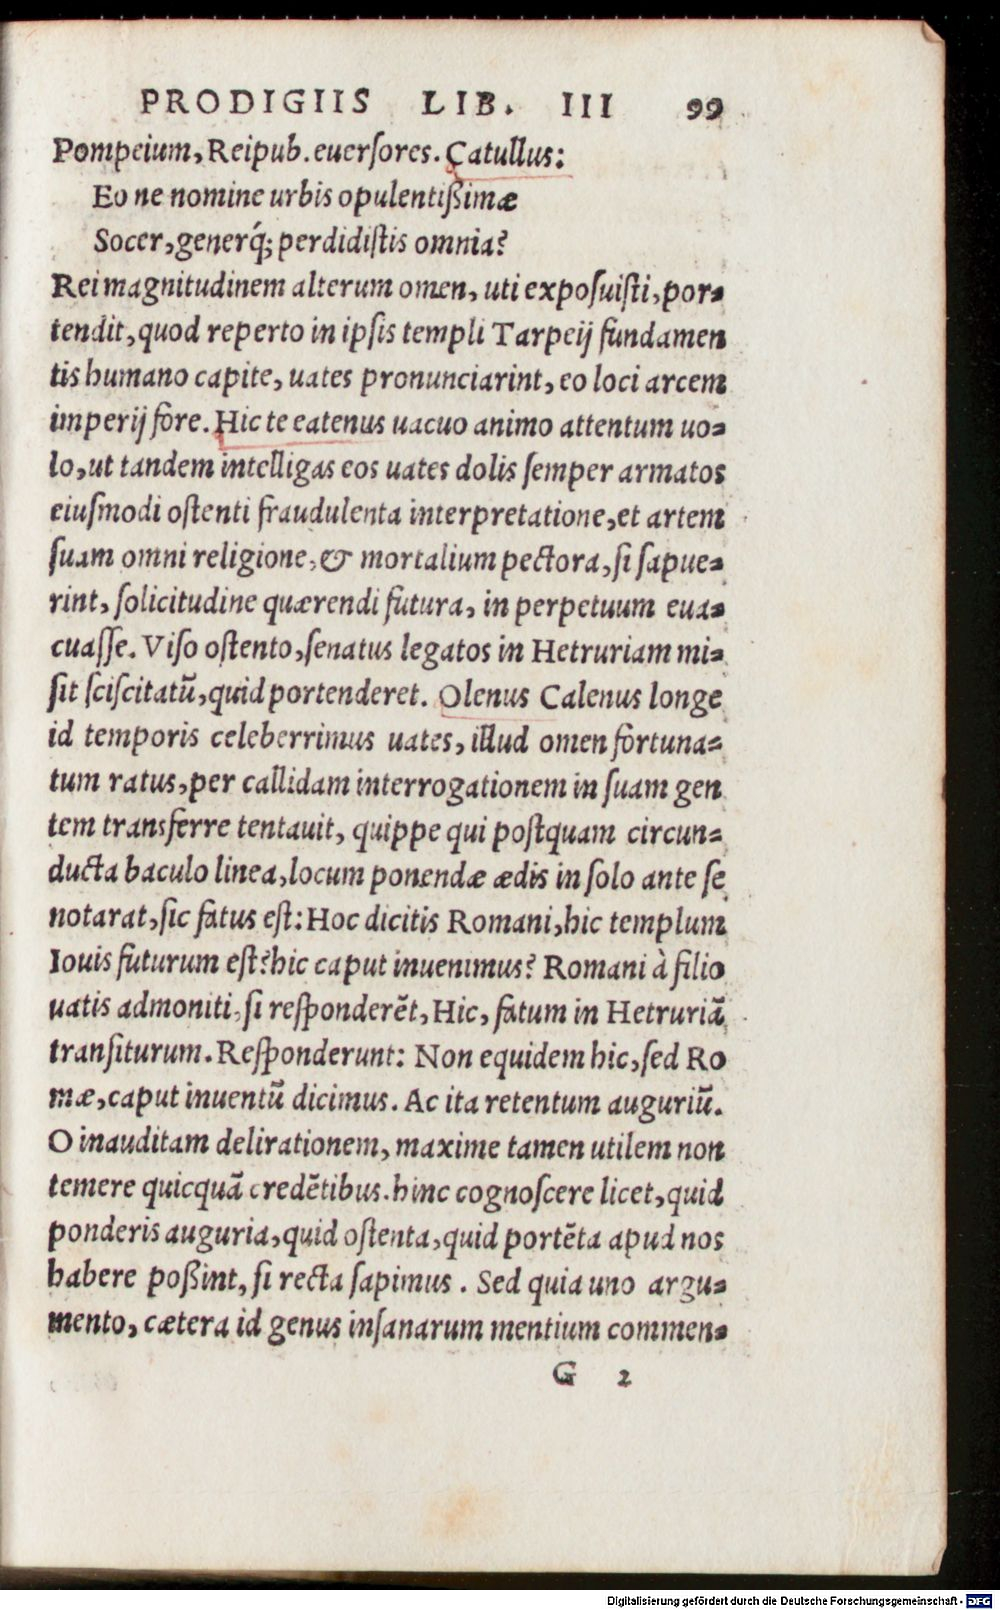 PRODIGIIS LIB. III 99
Pompeium, Reipub. euersores. Catullus:
Eo ne nomine urbis opulentißimæ
Socer, generq́; perdidiſtis omnia?
Rei magnitudinem alterum omen, uti expoſuiſti, por=
tendit, quod reperto in ipſis templi Tarpeij fundamen
tis humano capite, uates pronunciarint, eo loci arcem
imperij fore. Hic te eatenus uacuo animo attentum uo=
lo, ut tandem intelligas eos uates dolis ſemper armatos
eiuſmodi oſtenti fraudulenta interpretatione, et artem
ſuam omni religione, & mortalium pectora, ſi ſapue=
rint, ſolicitudine quærendi futura, in perpetuum eua=
cuaſſe. Viſo oſtento, ſenatus legatos in Hetruriam mi=
ſit ſciſcitatū, quid portenderet. Olenus Calenus longe
id temporis celeberrimus uates, illud omen fortuna=
tum ratus, per callidam interrogationem in ſuam gen
tem transferre tentauit, quippe qui poſtquam circun=
ducta baculo linea, locum ponendæ ædis in ſolo ante ſe
notarat, ſic fatus eſt: Hoc dicitis Romani, hic templum
Iouis futurum eſt? hic caput inuenimus? Romani à filio
uatis admoniti, ſi reſponderēt, Hic, fatum in Hetruriā
tranſiturum. Reſponderunt: Non equidem hic, ſed Ro
mæ, caput inuentū dicimus. Ac ita retentum auguriū.
O inauditam delirationem, maxime tamen utilem non
temere quicquā credētibus. hinc cognoſcere licet, quid
ponderis auguria, quid oſtenta, quid portēta apud nos
habere poßint, ſi recta ſapimus. Sed quia uno argu=
mento, cætera id genus inſanarum mentium commen=
G 2
Digitalisierung gefördert durch die Deutsche Forschungsgemeinschaft - DFG